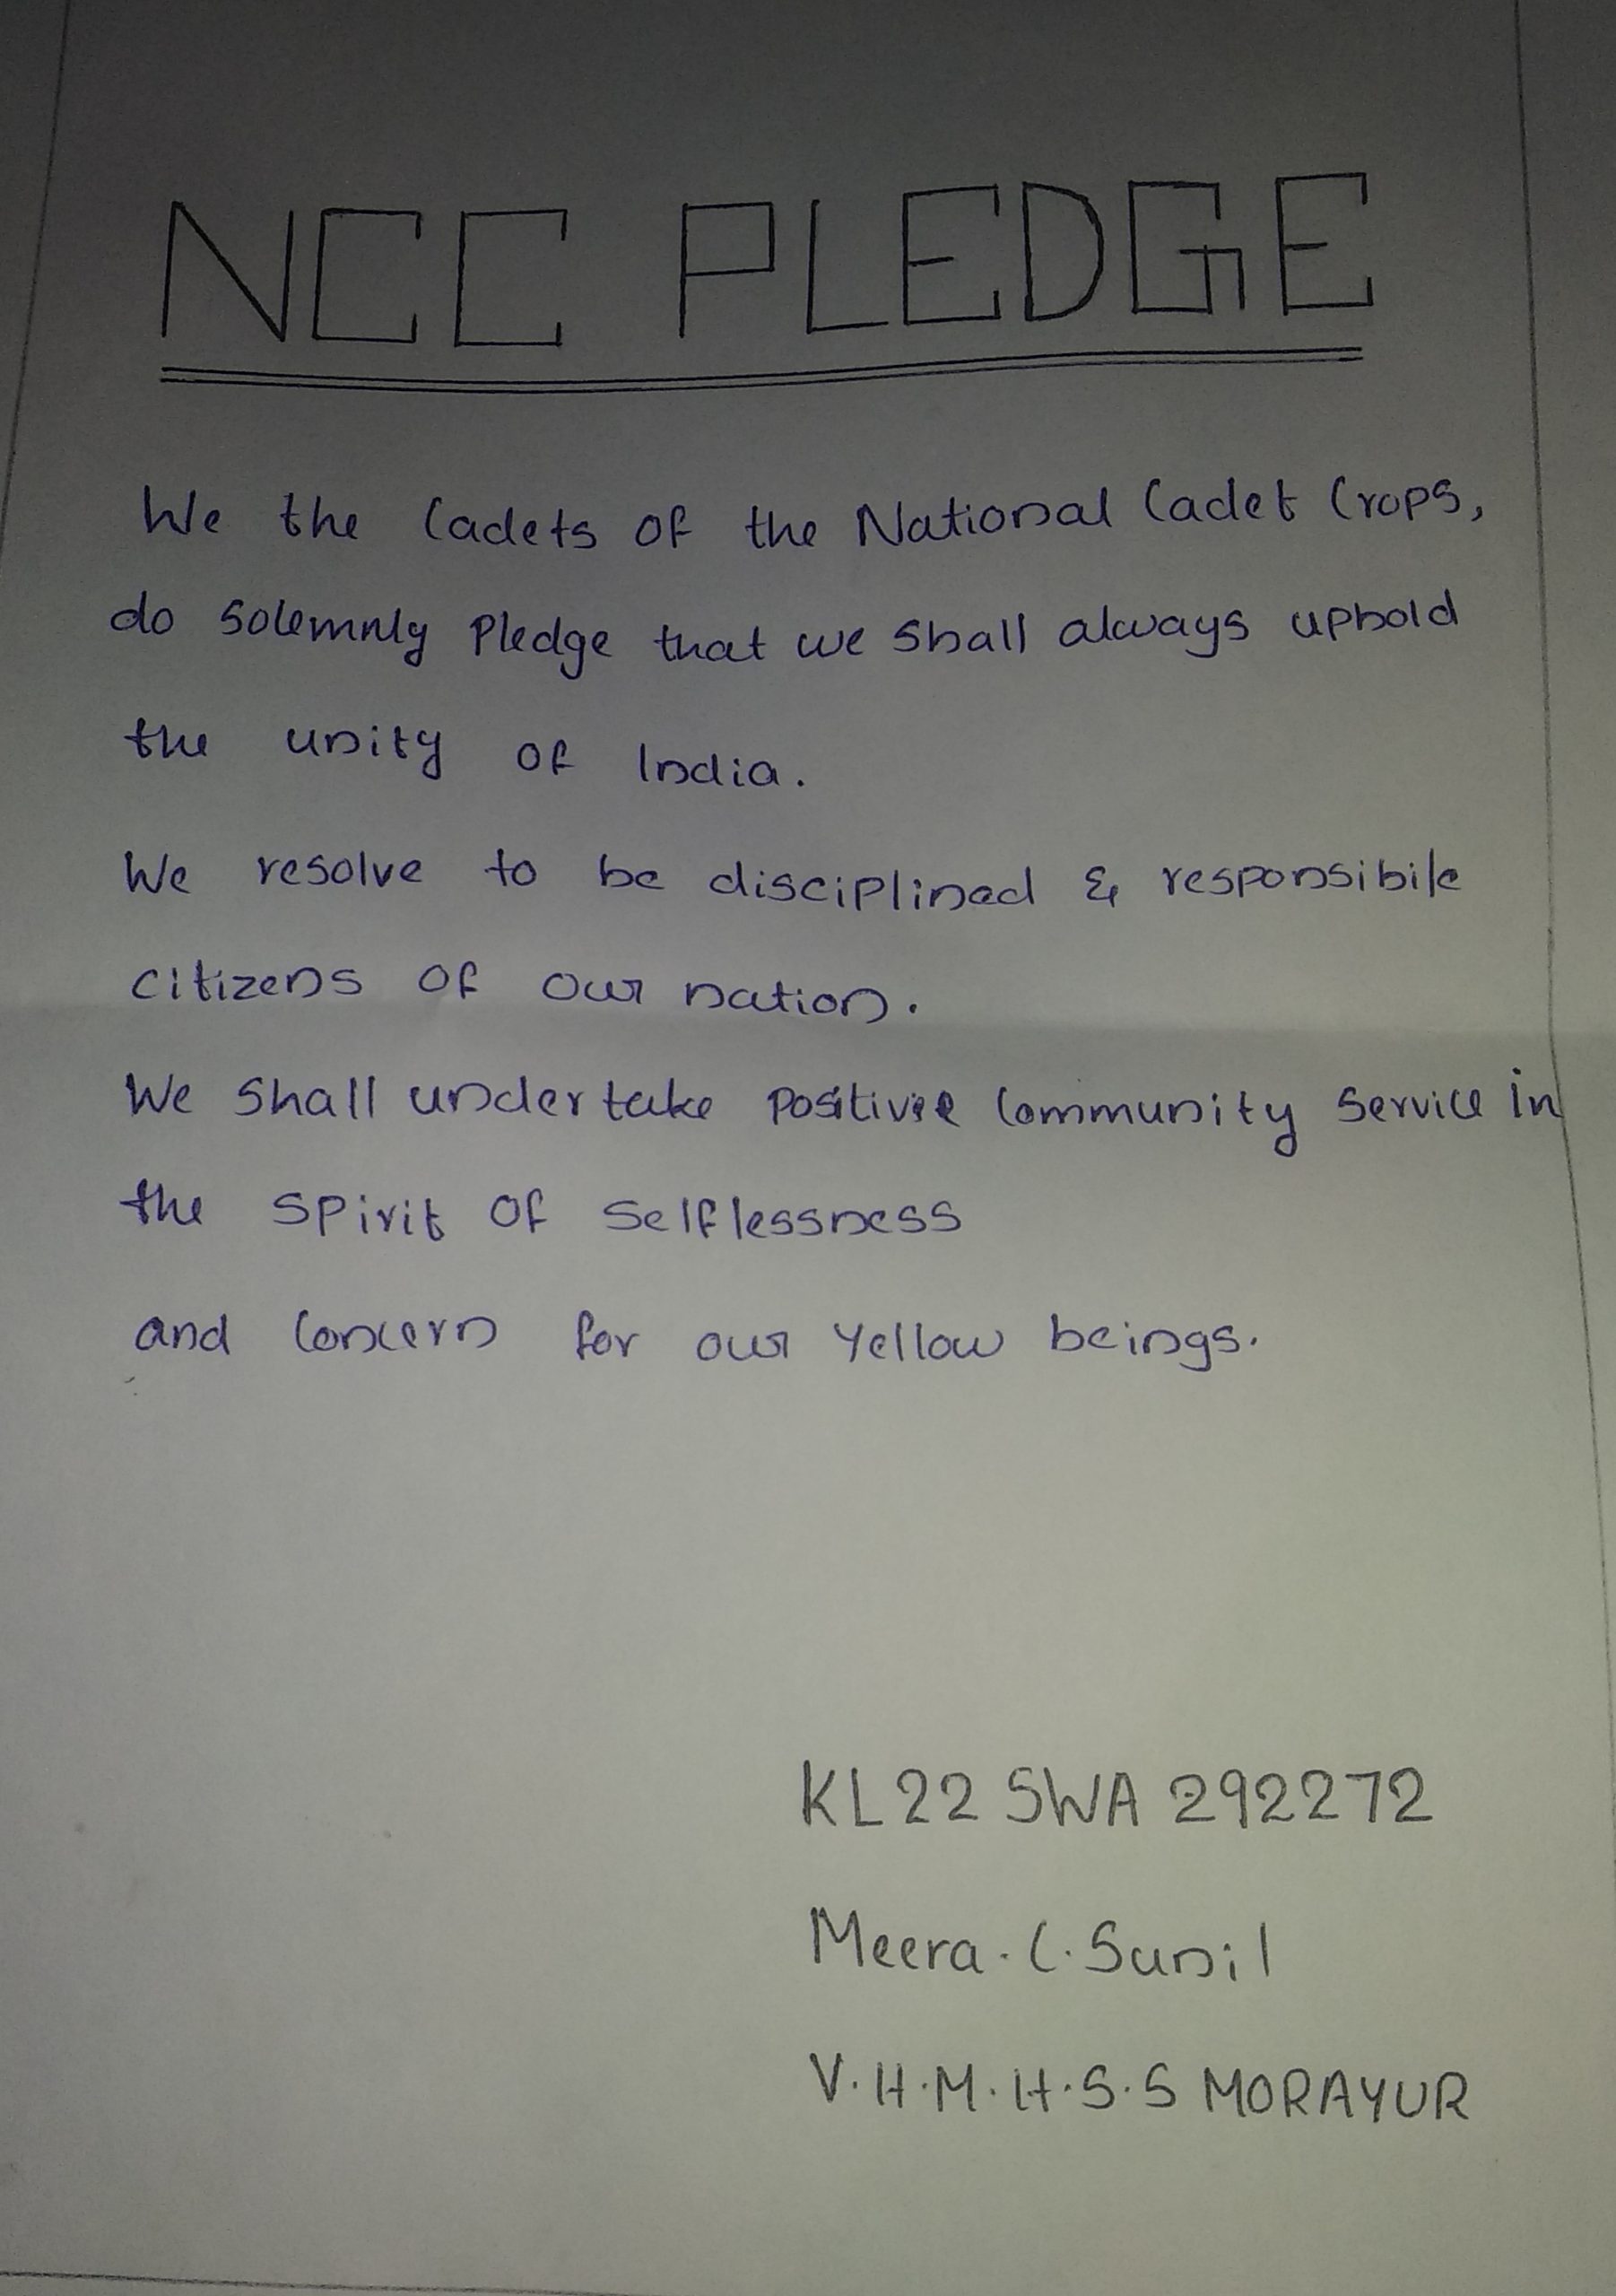 NCC PLEDGE
We the Cadets of the National Cadet Crops,
do solemnly Pledge that we shall always uphold
the unity of India.
We resolve to be disciplined & responsibile
citizens of our nation.
We shall undertake Positive Community service in
the spirit of selflessness
and concern for our yellow beings.
KL22 SWA 292272
Meera. C. Sunil
V.H.M.H.S.S MORAYUR